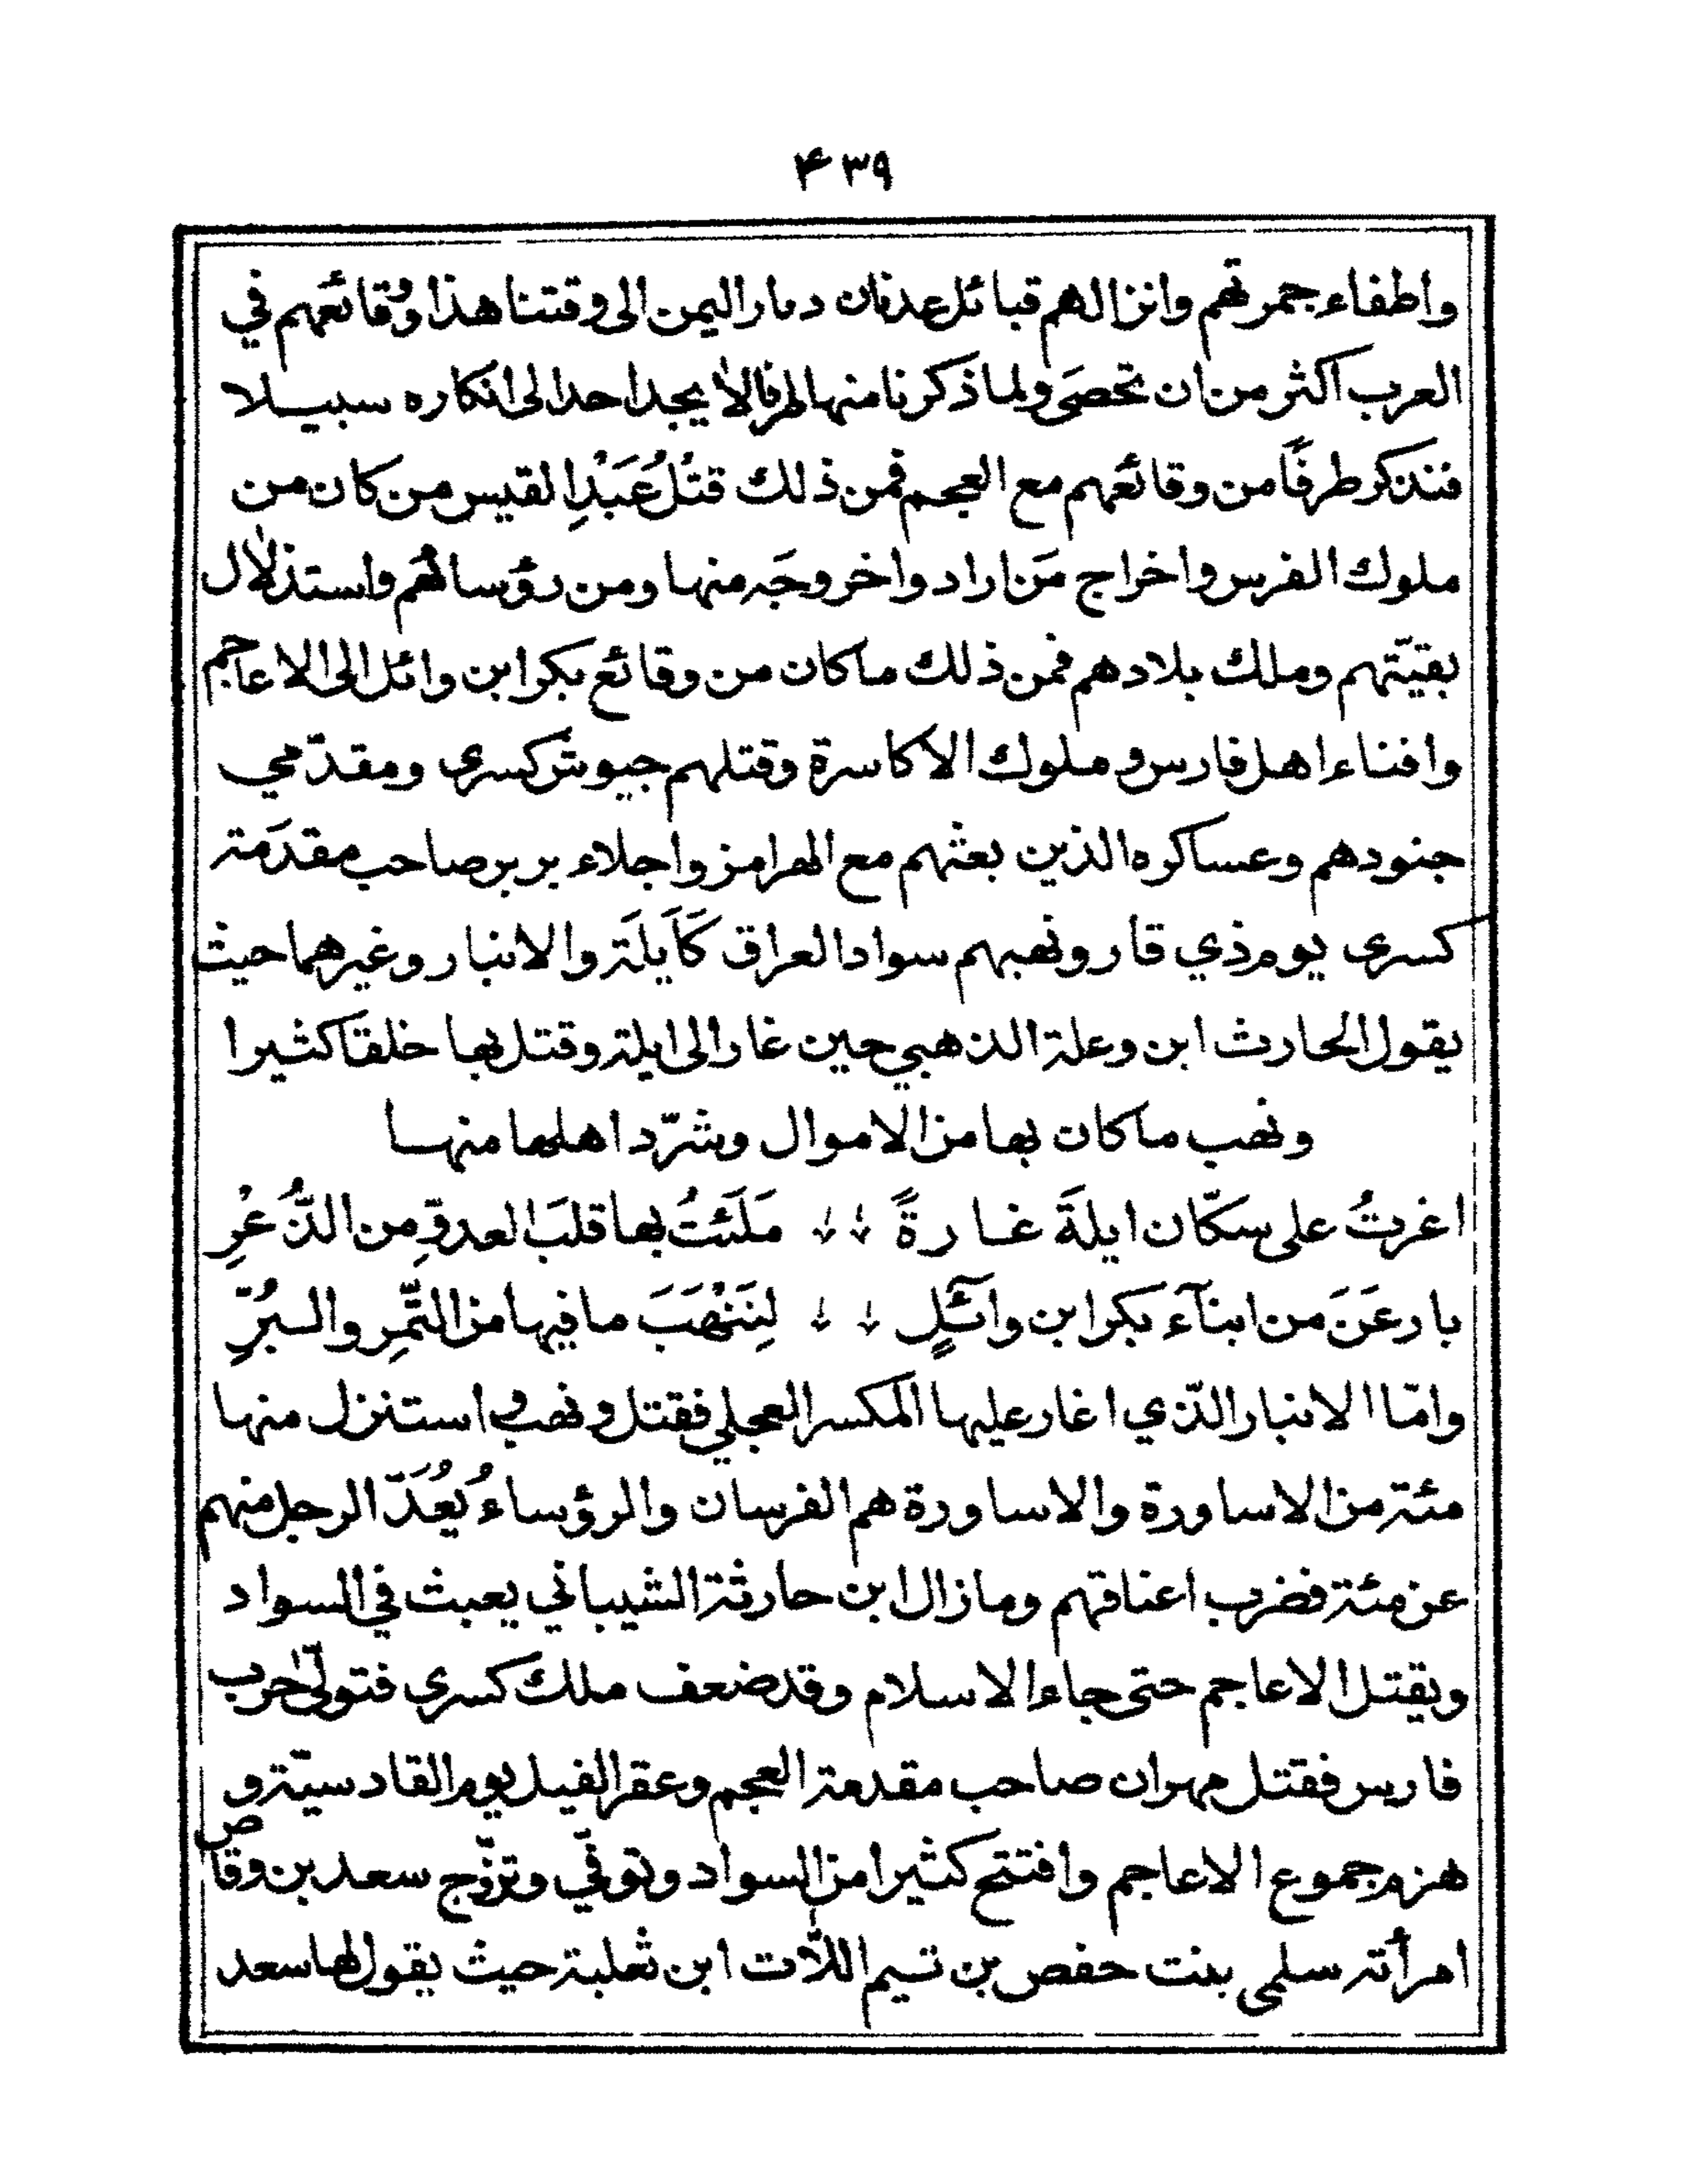 ۴۳۹
واطفاء جمرتهم وانزالهم قبائل عدنان ديار اليمن الى وقتنا هذا وُقائعهم في
العرب اكثر من ان تحصَى ولما ذكرنا منها طرفا لا يجد احد الى انكاره سبيلا
فنذكر طرفًا من وقائعهم مع العجم فمن ذلك قتْلُ عَبْدِ القيس من كان من
ملوك الفرس واخراج مَن ارادوا خروجَه منها ومن رؤسائهم واستذلال
بقيّتهم وملك بلادهم فمن ذلك ما كان من وقائع بكر ابن وائل الى الاعاجم
وافناء اهل فارس وملوك الاكاسرة وقتلهم جيوش كسرى ومقدّمي
جنودهم وعساكره الذين بعثهم مع الهرامز واجلاء بربر صاحب مقدَمته
كسرى يوم ذي قار ونهبهم سواد العراق كَاَيلَة والانبار وغيرهما حيث
يقول الحارث ابن وعلة الذهبي حين غار الى ايلة وقتل بها خلقًا كثيرا
ونهب ما كان بها من الاموال وشرّد اهلها منها
اغرتُ على سكّان ايلةَ غارةً مَلَئتُ بها قلبَ العدوِّ من الذُّعْرِ
بارعَنَ من ابنآء بكر ابن وائلٍ لِنَنْهَبَ ما فيها من التّمرِ والبُرِّ
وامّا الانبار الّذي اغار عليها المكسر العجلي فقتل ونهب واستنزل منها
مئة من الاساورة والاساورة هم الفرسان والرؤساءُ يُعَدّ الرجل منهم
عن مئة فضرب اعناقهم وما زال ابن حارثة الشيباني يعبث في السواد
ويقتل الاعاجم حتى جاء الاسلام وقد ضعف ملك كسرى فتولّى حرب
فارس فقتل مهران صاحب مقدمة العجم وعقر الفيل يوم القادسيّة و
هزم جموع الاعاجم وافتتح كثيرا من السواد وتوفّي وتزّوج سعد بن وقاص
امرأته سلمى بنت حفص بن تيم اللّات ابن ثعلبة حيث يقول لها سعد